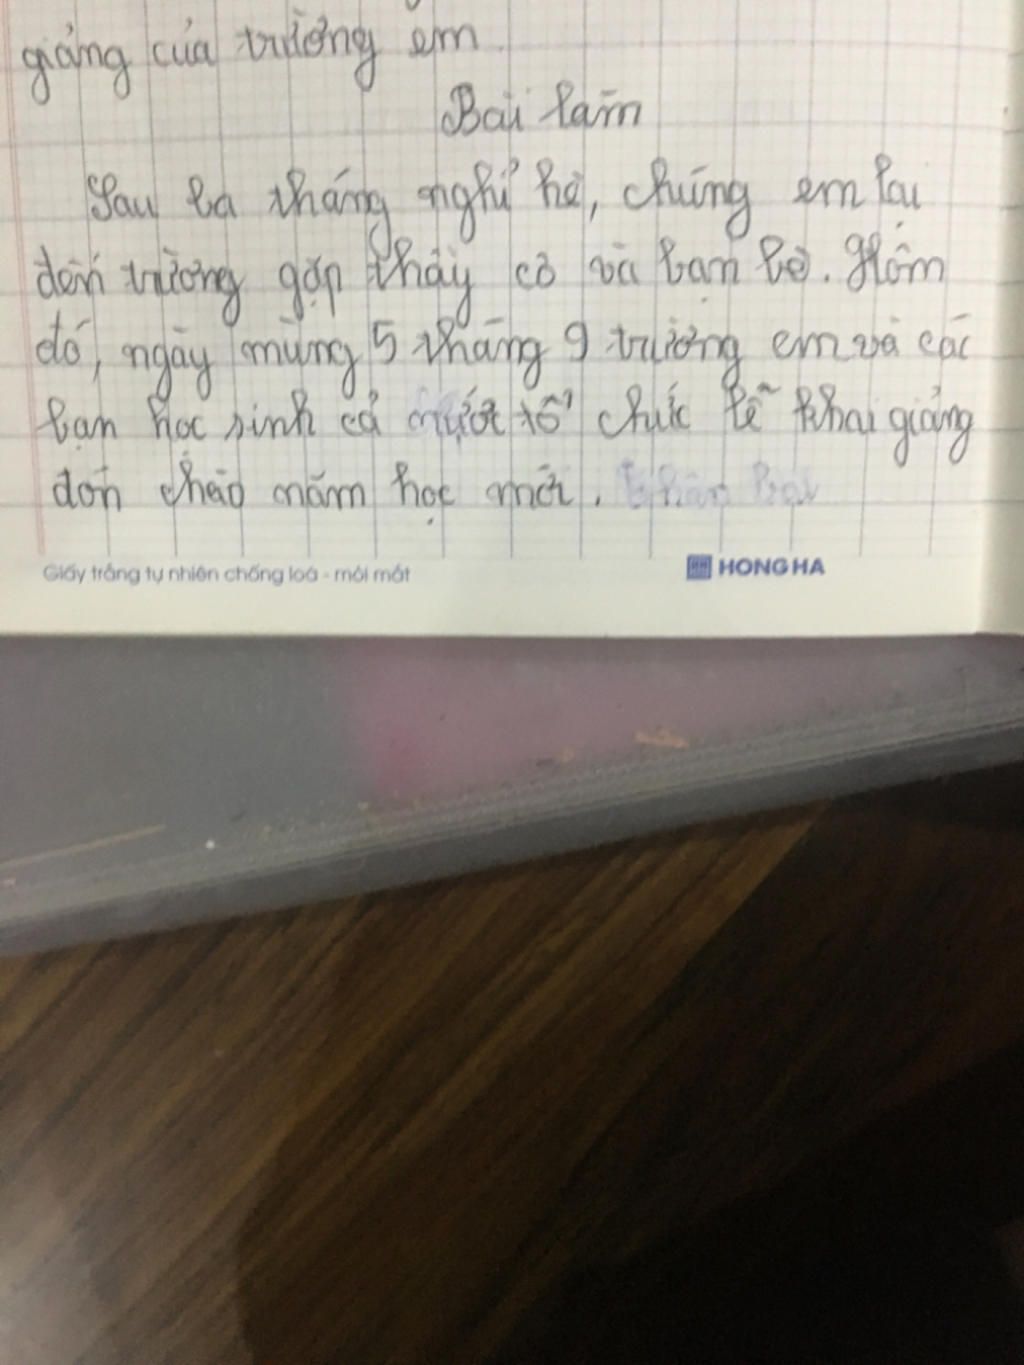 giảng của trường em.
Bài làm
Sau ba tháng nghỉ hè, chúng em lại
đến trường gặp thầy cô và bạn bè. Hôm
đó, ngày mùng 5 tháng 9 trường em và các
bạn học sinh cả nước tổ chức lễ khai giảng
đón chào năm học mới.
Giấy trắng tự nhiên chống loá - mỏi mắt
HONG HA